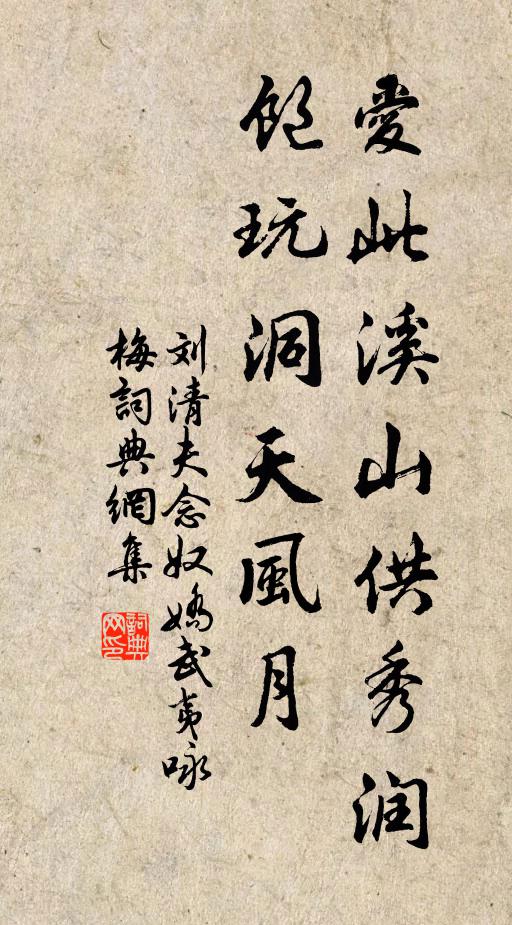 愛此溪山供秀润
飽玩洞天風月
刘清夫念奴嬌武夷咏
梅詞典網集
詞典网印